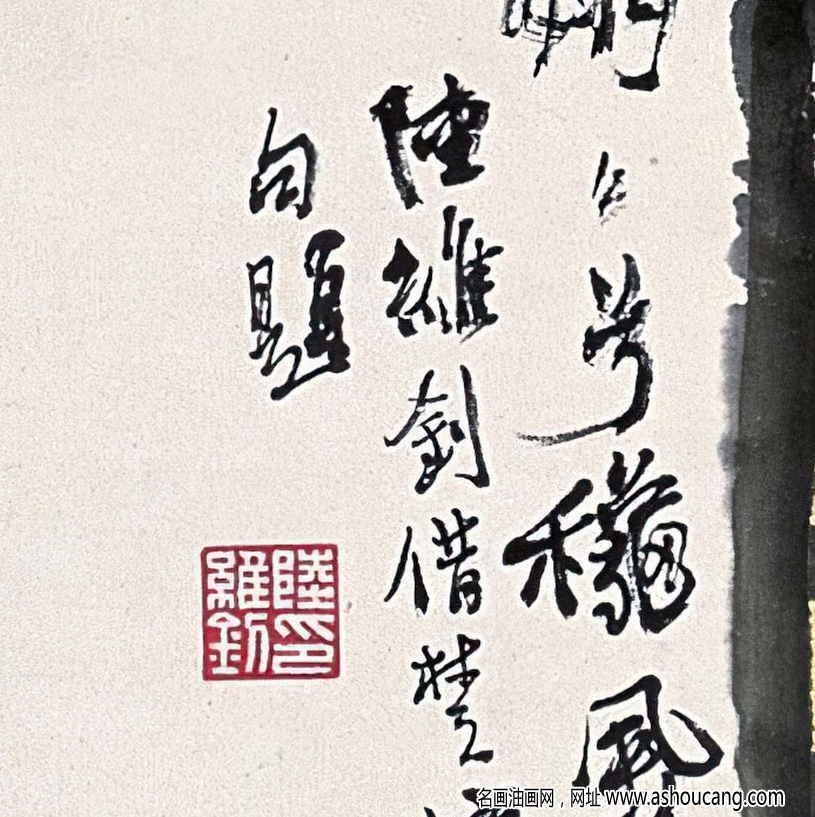 々兮龝風
陸維釗借楚
句題
陸維釗印
名画油画网，网址 www.ashoucang.com